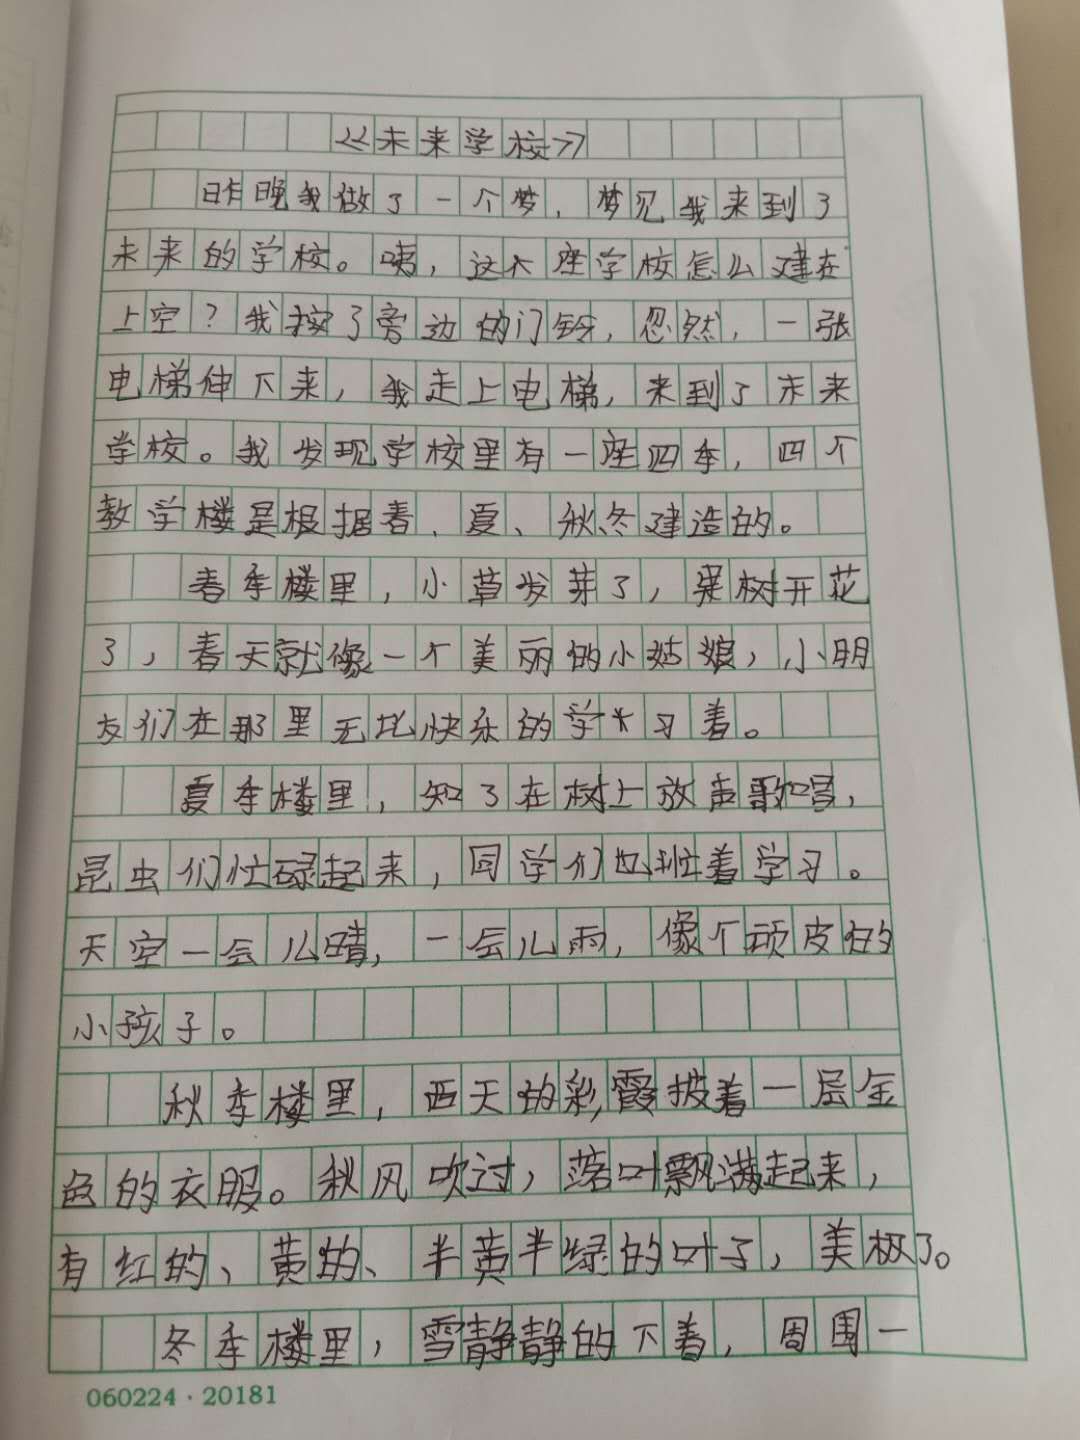 《未来学校》
昨晚我做了一个梦，梦见我来到了
未来的学校。咦，这大座学校怎么建在
上空？我按了旁边的门铃，忽然，一张
电梯伸下来，我走上电梯，来到了未来
学校。我发现学校里有一座四季，四个
教学楼是根据春、夏、秋冬建造的。
春季楼里，小草发芽了，果树开花
了，春天就像一个美丽的小姑娘，小朋
友们在那里无比快乐的学习着。
夏季楼里，知了在树上放声歌唱，
昆虫们忙碌起来，同学们也忙着学习。
天空一会儿晴，一会儿雨，像个顽皮的
小孩子。
秋季楼里，西天的彩霞披着一层金
色的衣服。秋风吹过，落叶飘满起来，
有红的、黄的、半黄半绿的叶子，美极了。
冬季楼里，雪静静的下着，周围一
060224·20181